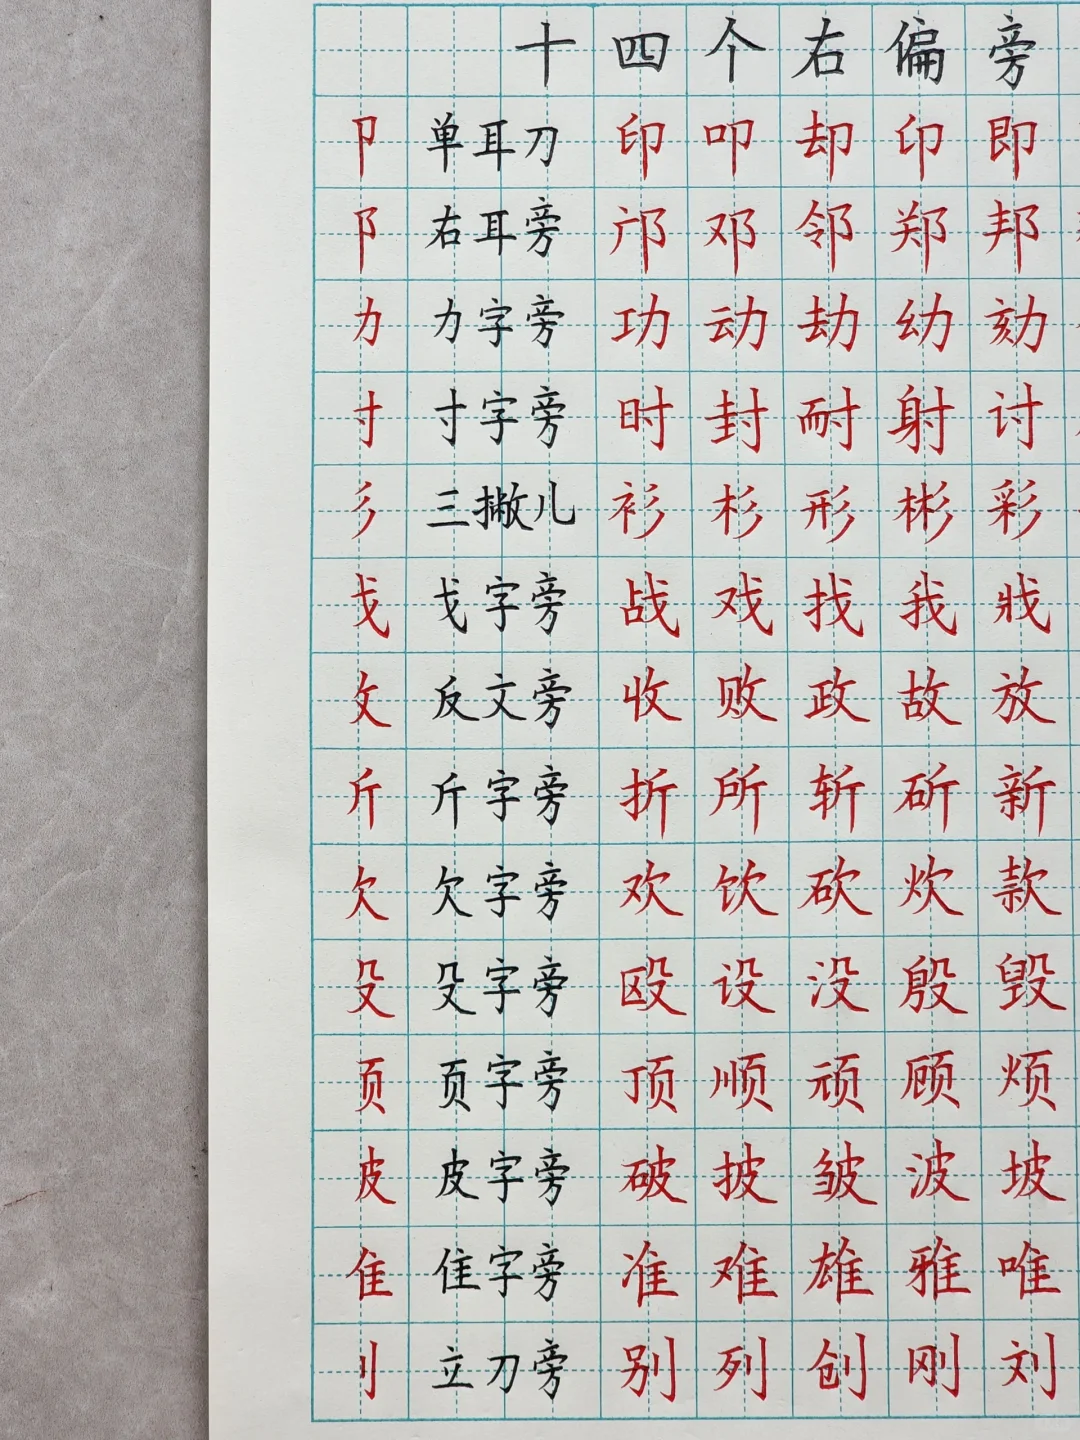 十四个右偏旁
卩 单耳刀 印 叩 却 卬 即
阝 右耳旁 邝 邓 邻 郑 邦
力 力字旁 功 动 劫 幼 劾
寸 寸字旁 时 封 耐 射 讨
彡 三撇儿 衫 杉 形 彬 彩
戈 戈字旁 战 戏 找 我 戕
攵 反文旁 收 败 政 故 放
斤 斤字旁 折 所 斩 斫 新
欠 欠字旁 欢 饮 砍 炊 款
殳 殳字旁 殴 设 没 殷 毁
页 页字旁 顶 顺 顽 顾 烦
皮 皮字旁 破 披 皱 波 坡
隹 隹字旁 准 难 雄 雅 唯
刂 立刀旁 别 列 创 刚 刘